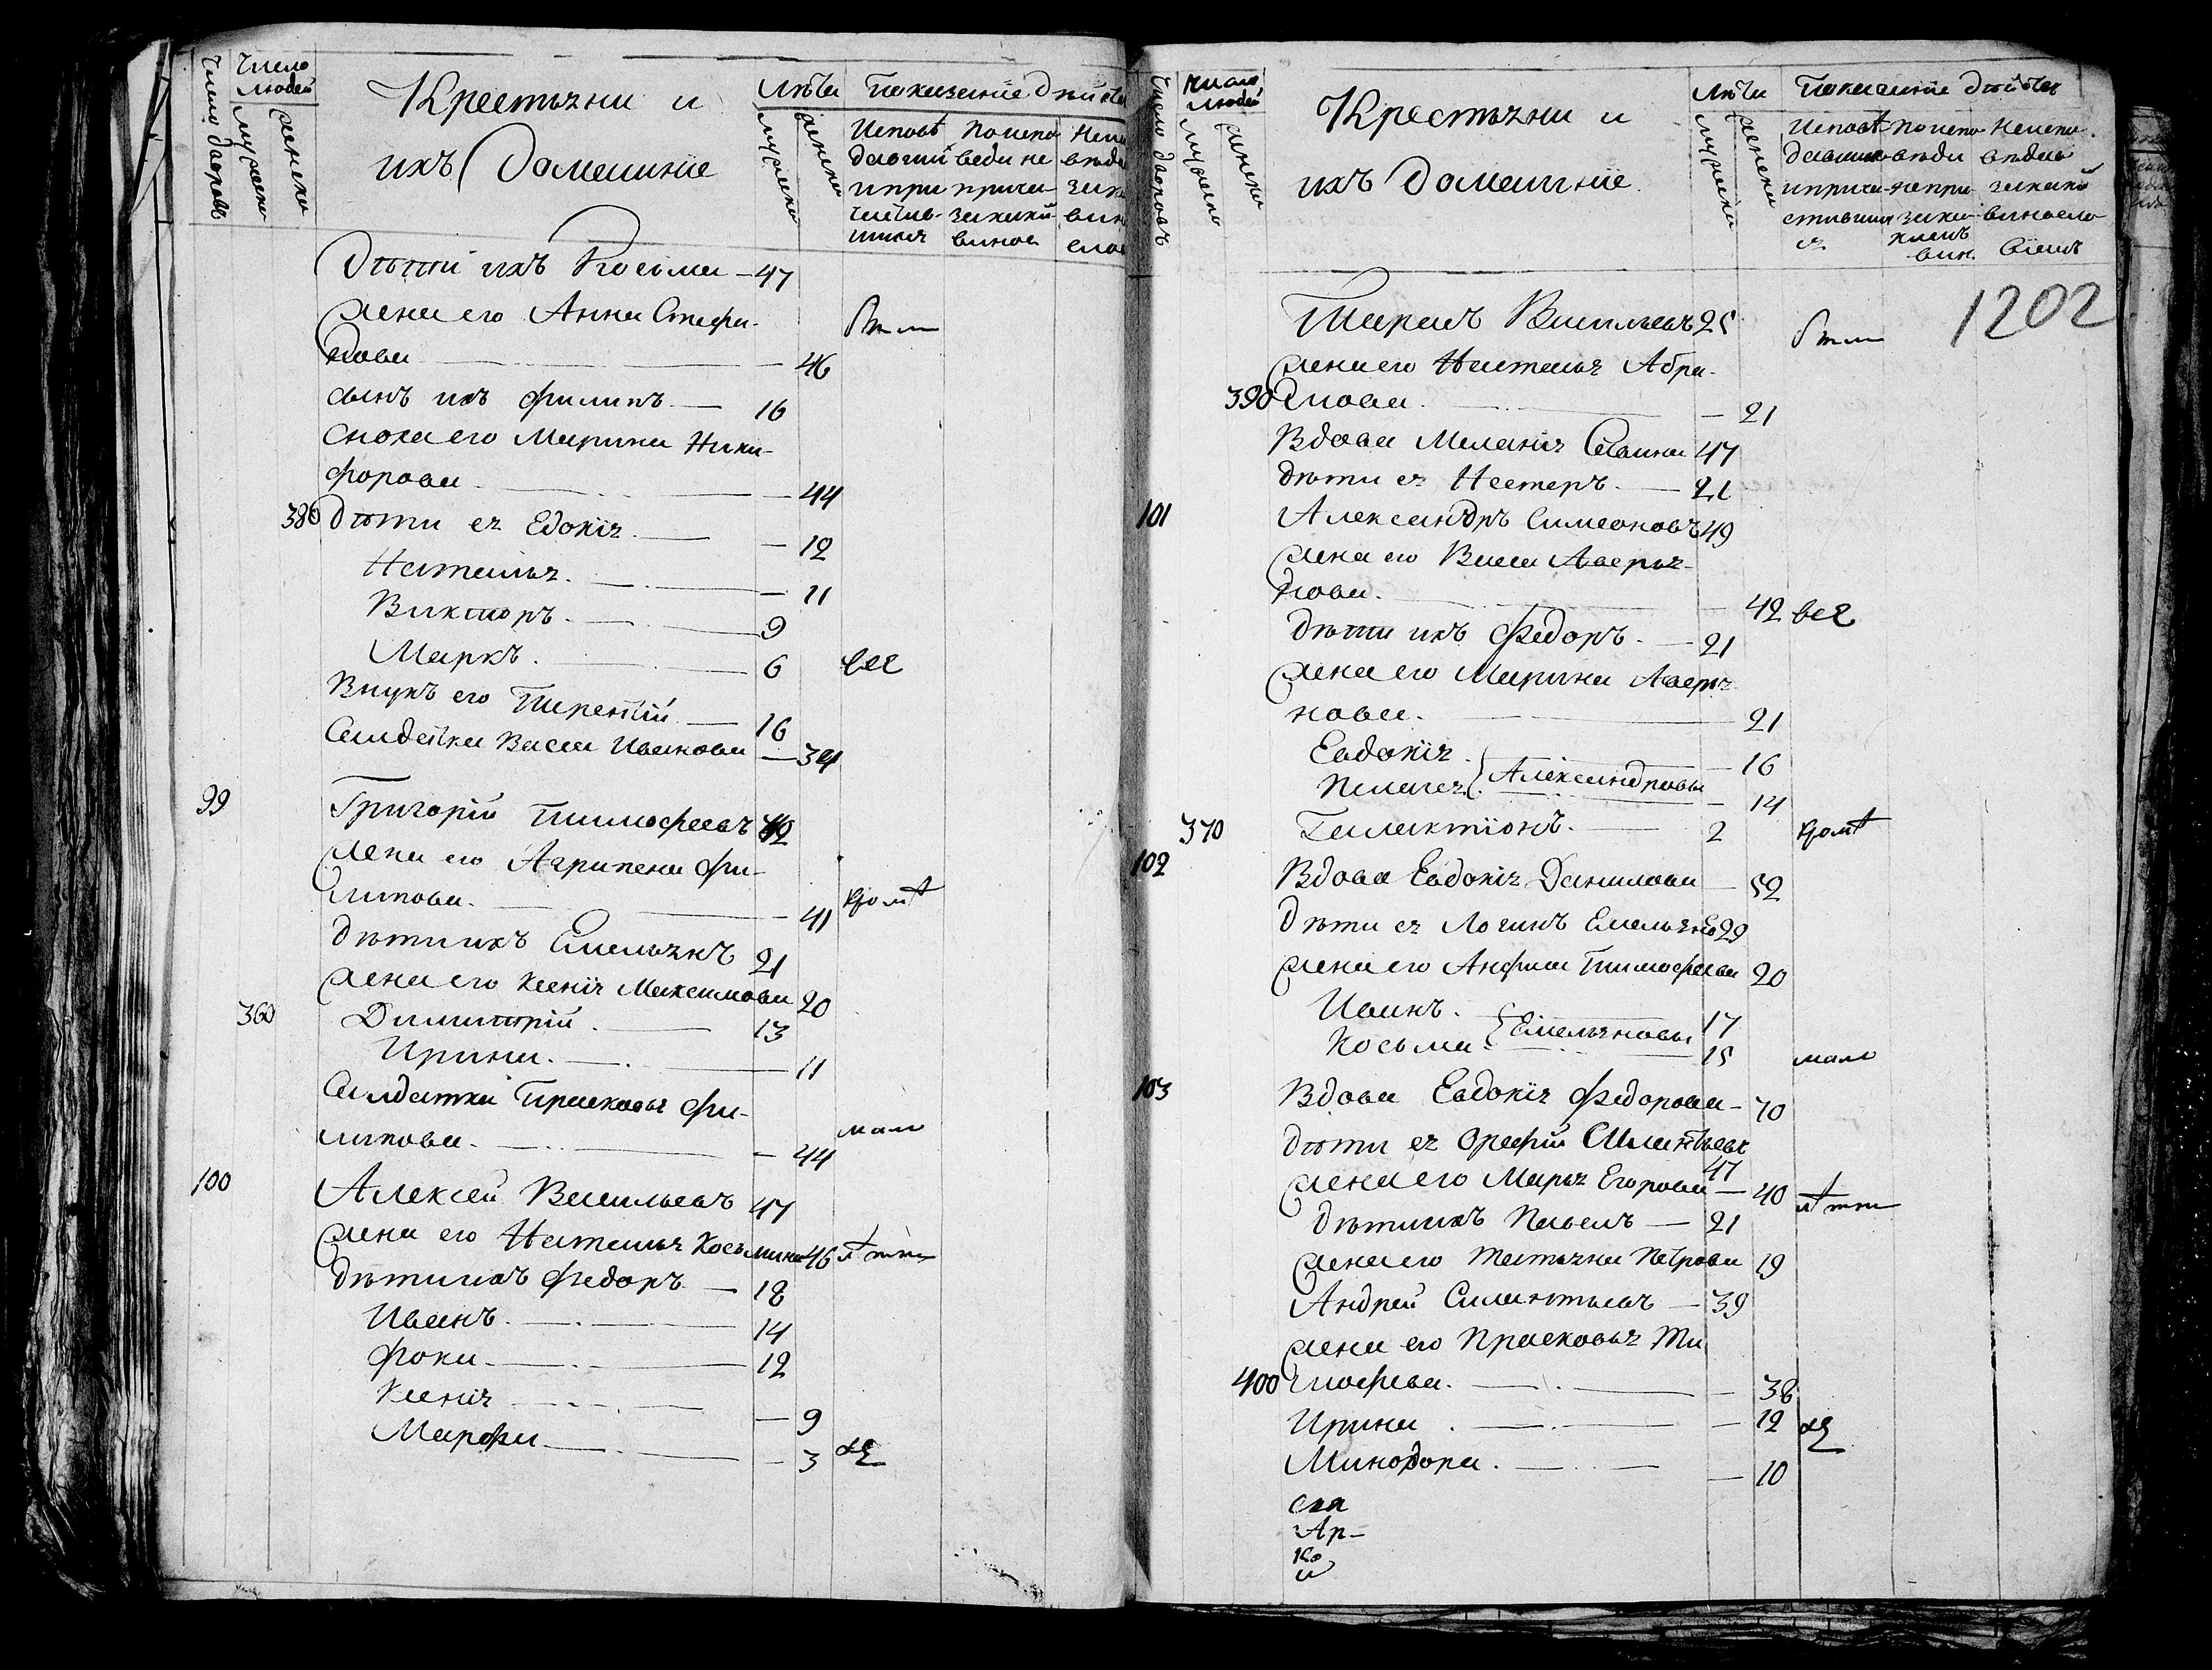 Число дворовъ
Число
людей
мужеска
женска
Крестьяни и
ихъ Домашние
Лѣта
мужеска
женска
Показание Дѣйств
Исповѣ
давши
и при
Поиспо
веди не
прича
дѣти ихъ Косьма — 47
жена его Анна Стефа-
нова — 46
сынъ ихъ Филипъ — 16
сноха его Марина Ники-
форова — 44
380 дѣти ея Едокія — 12
Наталья — 11
Викторъ — 9
Маркъ — 6
Внукъ его Терентій — 16
Салдатка Васса Иванова — 34
99 Григорій Тимофеевъ 42
жена его Агрипена Фи-
липова — 41
дѣти ихъ Емельянъ 21
жена его Ксенія Максимова 20
360 Димитрій — 13
Ирина — 11
Салдатка Прасковья Фи-
липова — 44
100 Алексей Васильевъ 47
жена его Наталья Косьмина 46
дѣти ихъ Федоръ — 18
Иванъ — 14
Фока — 12
Ксенія — 9
Марфа — 3
Число дворовъ
Число
людей
мужеска
женска
Крестьяни и
ихъ Домашние
Лѣта
мужеска
женска
Показание дѣйств
1202
Тарасъ Васильевъ 25
жена его Наталья Абра-
390 мова — 21
Вдова Меланія Савина 47
дѣти ея Нестеръ — 21
101 Александръ Симеоновъ 49
жена его Васса Аверья-
нова — 42
дѣти ихъ Федоръ — 21
жена его Марина Аверья-
нова — 21
Евдокія — 16
Пелагея Александровы — 14
370 Галактіонъ — 2
102 Вдова Евдокія Данилова — 52
дѣти ея Логинъ Емельяно 29
жена его Анфиса Тимофеева 20
Иванъ 17
Косьма Емельяновы 15
103 Вдова Евдокія Федорова — 70
дѣти ея Орефій Силантьевъ
47
жена его Марья Егорова — 40
дѣти ихъ Павелъ — 21
жена его Татьяна Петрова 19
Андрей Силантьевъ — 39
жена его Прасковья Ти
400 мофева — 38
Ирина — 12
Минодора — 10
Ар-